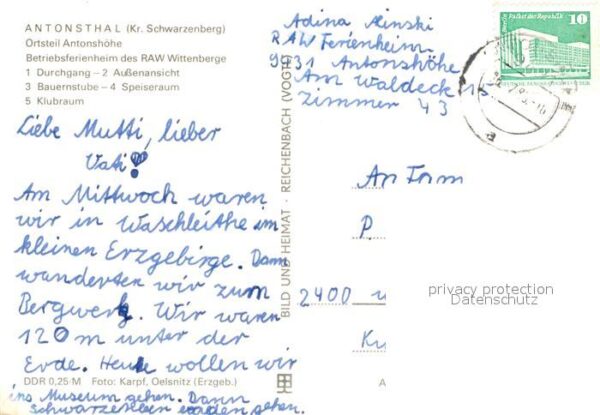 ANTONSTHAL (Kr. Schwarzenberg)
Ortsteil Antonshöhe
Betriebsferienheim des RAW Wittenberge
1 Durchgang – 2 Außenansicht
3 Bauernstube – 4 Speiseraum
5 Klubraum
Liebe Mutti, lieber
Vati!
Am Mittwoch waren
wir in Waschleithe im
kleinen Erzgebirge. Dann
wanderten wir zum
Bergwerk. Wir waren
120m unter der
Erde. Heute wollen wir
ins Museum gehen. Dann
gehen.
DDR 0,25 M Foto: Karpf, Oelsnitz (Erzgeb.)
BILD UND HEIMAT · REICHENBACH (VOGTL
Adina
RAW Ferienheim
9431 Antonshöhe
Am Waldeck 13
Zimmer 43
Palast der Republik 10
An Fam
P.
2400
privacy protection
Datenschutz
A